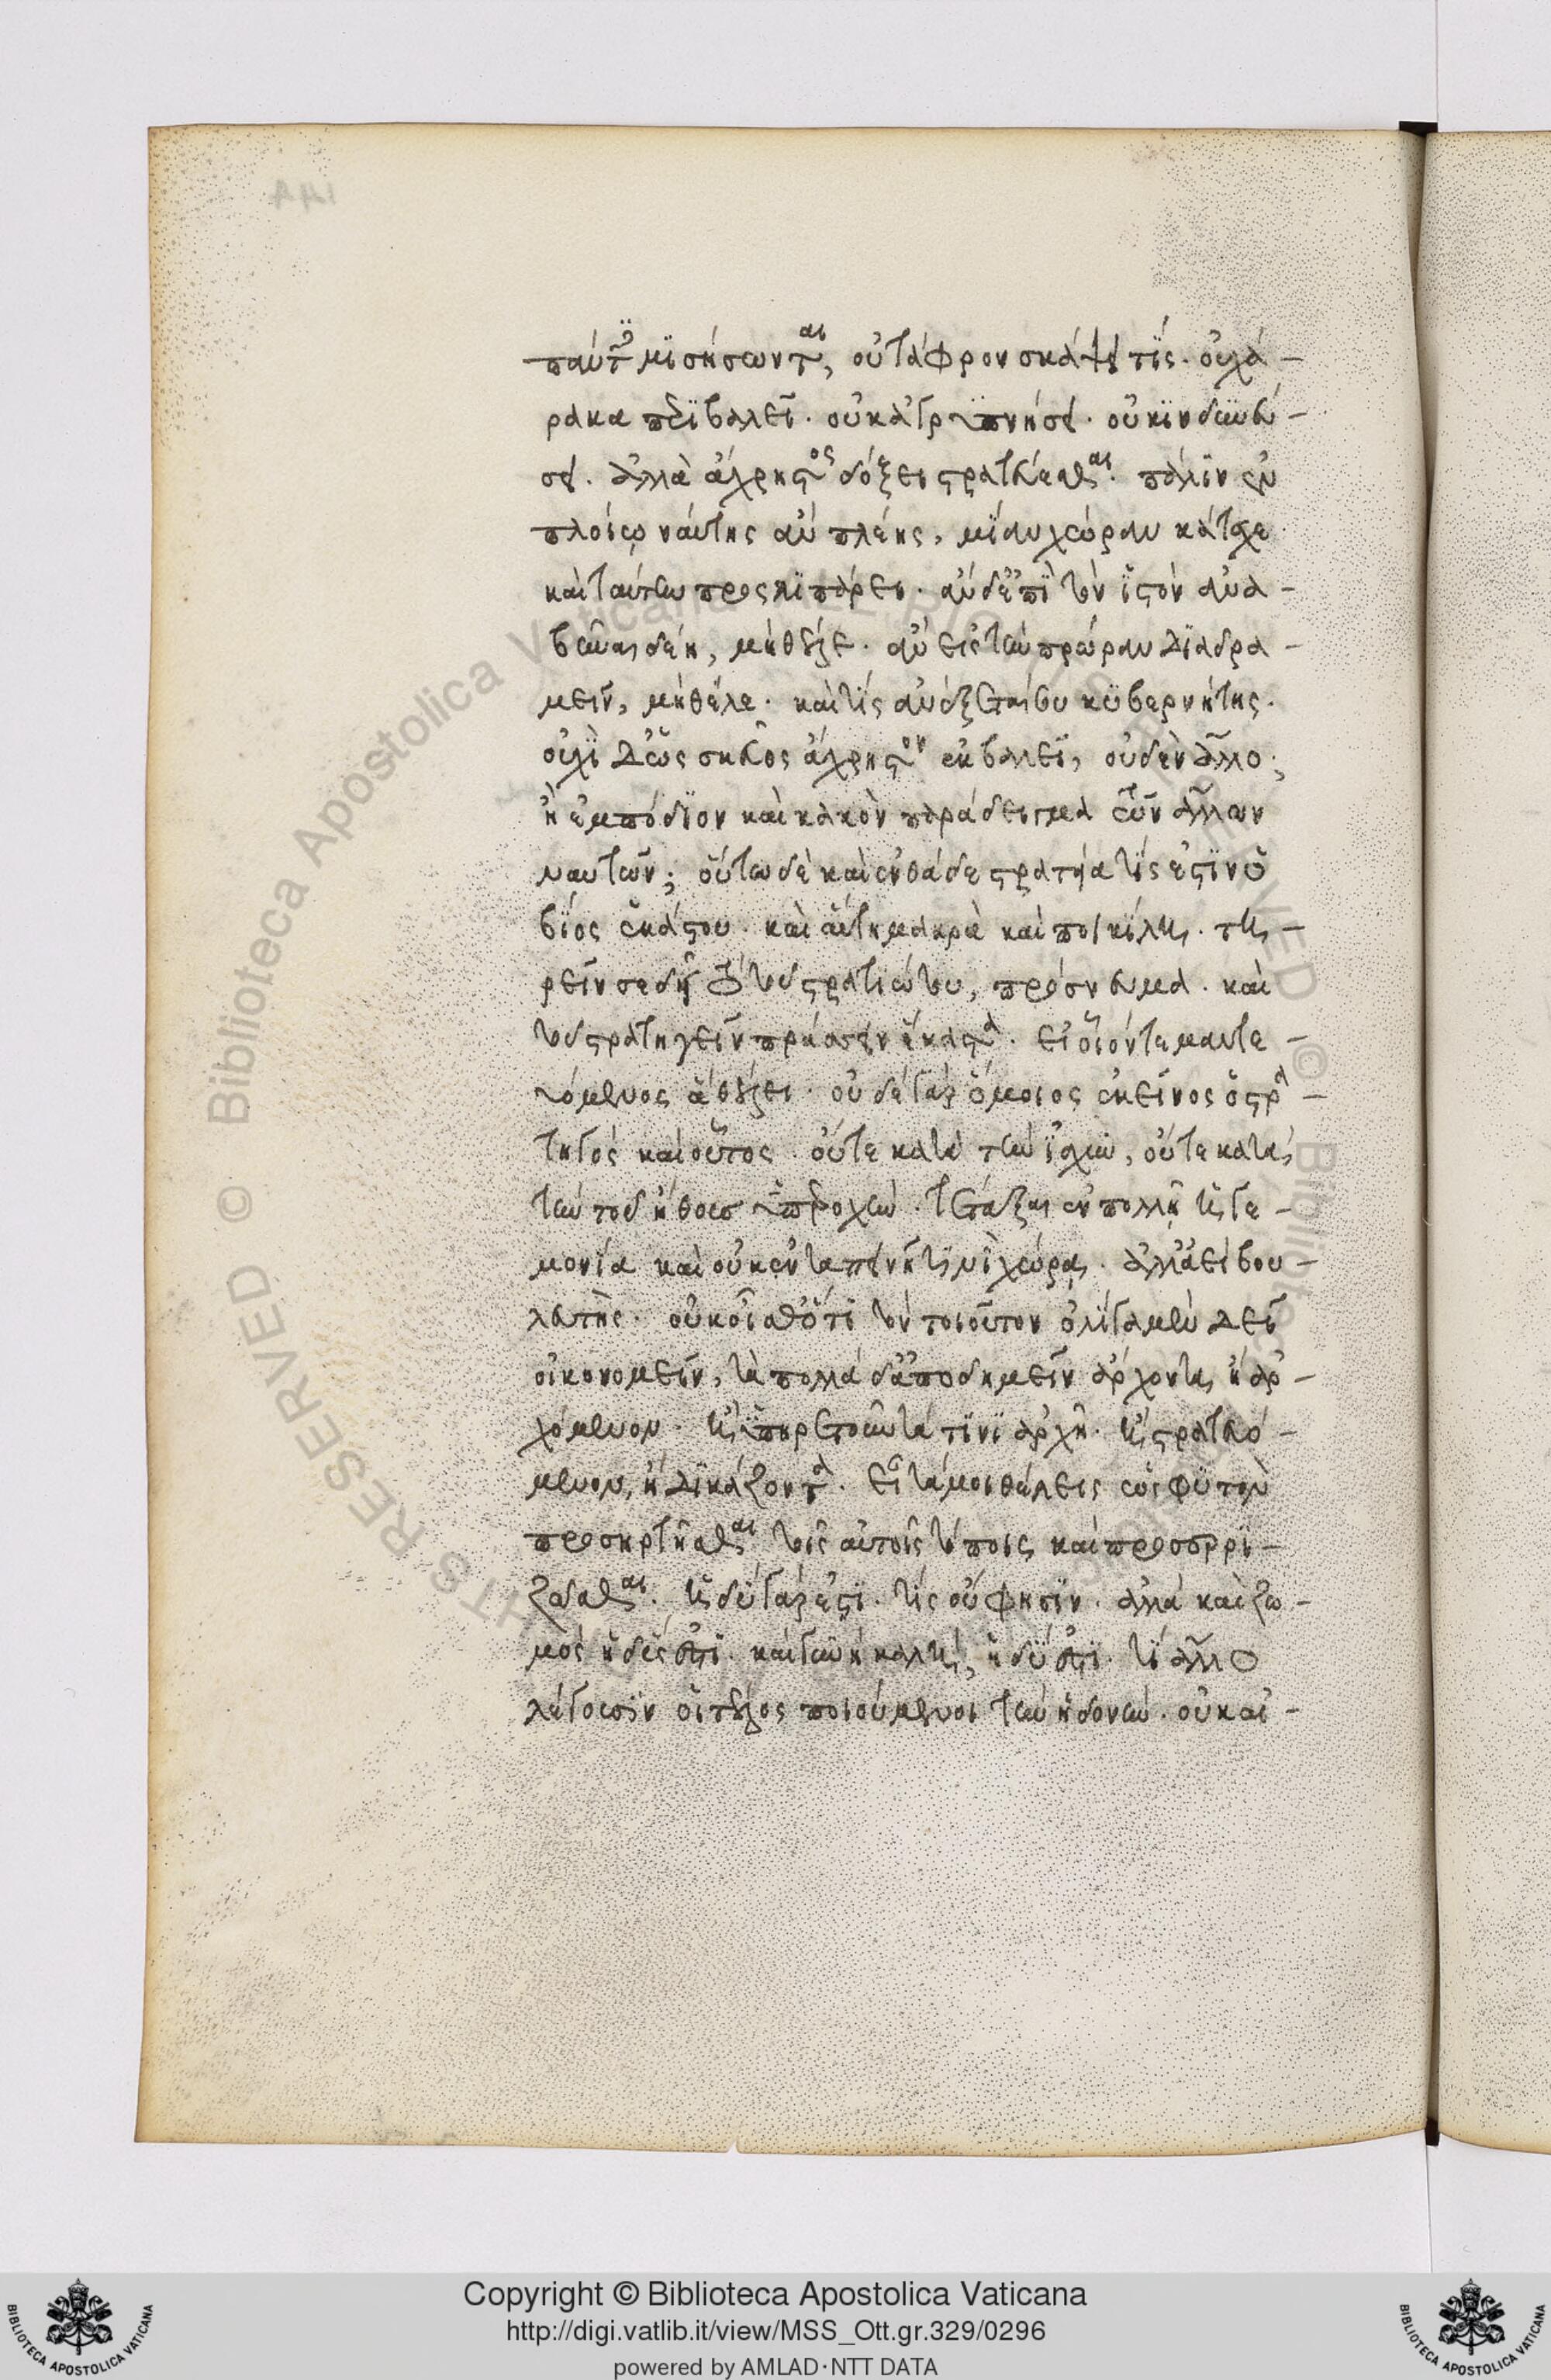 πάντες μιμήσωνται, οὐ τάφρον σκάψει τίς. οὐ χά-
ρακα περιβαλεῖ. οὐκ ἀγρυπνήσει. οὐ κινδυνεύ-
σει. ἀλλὰ ἄχρηστος δόξει στρατεύεσθαι. πάλιν ἐν
πλοίῳ ναύτης ἂν πλέῃς, μίαν χώραν κάτεχε
καὶ ταύτην προσλιπάρει. ἂν δ' ἐπὶ τὸν ἱστὸν ἀνα-
βῆναι δέῃ, μὴ θέλε. ἂν εἰς τὴν πρώραν διαδρα-
μεῖν, μὴ θέλε. καὶ τίς ἀνέξεταί σου κυβερνήτης.
οὐχὶ δ' ὡς σκεῦος ἄχρηστον ἐκβαλεῖ, οὐδὲν ἄλλο;
ἢ ἐμπόδιον καὶ κακὸν παράδειγμα τῶν ἄλλων
ναυτῶν; οὕτω δὲ καὶ ἐνθάδε στρατεία τίς ἐστιν ὁ
βίος ἑκάστου. καὶ αὕτη μακρὰ καὶ ποικίλη. τη-
ρεῖν σε δεῖ τὸ τοῦ στρατιώτου, πρόσνευμα. καὶ
τοῦ στρατηγεῖν πράσσειν ἕκαστα. εἰ οἷόν τε μαντε-
υόμενος ἃ θέλει. οὐδὲ γὰρ ὅμοιος ἐκεῖνος ὁ στρα-
τηγὸς καὶ οὗτος. οὔτε κατὰ τὴν ἰσχὺν, οὔτε κατὰ
τὴν τοῦ ἤθους ὑπεροχήν. τέταξαι ἐν πόλει ἡγε-
μονία καὶ οὐκ ἐν ταπεινῇ τινι χώρᾳ. ἀλλ' ἀεὶ βου-
λευτής. οὐκ οἶσθ' ὅτι τὸν τοιοῦτον ὀλίγα μὲν δεῖ
οἰκονομεῖν, τὰ πολλὰ δ' ἀποδημεῖν ἄρχοντα, ἢ ἀρ-
χόμενον. ἢ ὑπηρετοῦντά τινι ἀρχῇ. ἢ στρατευό-
μενον, ἢ δικάζοντα. εἶτά μοι θέλεις ὡς φυτὸν
προσηρτῆσθαι τοῖς αὐτοῖς τόποις καὶ προσερρι-
ζῶσθαι. ἡδὺ γὰρ ἐστι. τίς οὔ φησιν. ἀλλὰ καὶ ζω-
μὸς ἡδύς ἐστι. καὶ γυνὴ καλὴ, ἡδύ ἐστι. τί ἄλλο
λέγουσιν οἱ τέλος ποιούμενοι τὴν ἡδονήν. οὐκ αἰ-
Copyright © Biblioteca Apostolica Vaticana
http://digi.vatlib.it/view/MSS_Ott.gr.329/0296
powered by AMLAD·NTT DATA